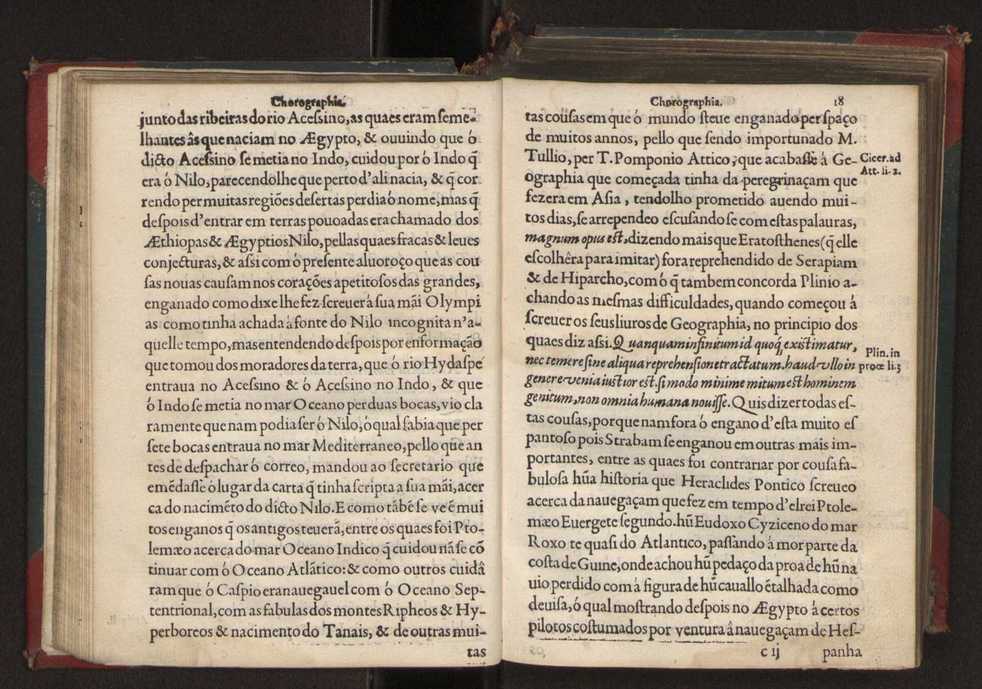 Chorographia.
junto das ribeiras do rio Acesſino, as quaes eram ſeme-
lhantes âs que naciam no Ægypto, & ouuindo que ó
dicto Acesſino ſe metia no Indo, cuidou por ó Indo q̃
era ó Nilo, parecendolhe que perto d'ali nacia, & q̃ cor
rendo per muitas regiões deſertas perdia ó nome, mas q̃
deſpois d'entrar em terras pouoadas era chamado dos
Æthiopas & Ægyptios Nilo, pellas quaes fracas & leues
conjecturas, & aſsi com ó preſente aluoroço que as cou
ſas nouas cauſam nos corações apetitoſos das grandes,
enganado como dixe lhe fez ſcreuer á ſua mãi Olympi
as como tinha achada á fonte do Nilo incognita n'a-
quelle tempo, mas entendendo deſpois por enformação
que tomou dos moradores da terra, que ó rio Hydaſpe
entraua no Acesſino & ó Acesſino no Indo, & que
ó Indo ſe metia no mar Oceano per duas bocas, vio cla
ramente que nam podia ſer ó Nilo, ó qual ſabia que per
ſete bocas entraua no mar Mediterraneo, pello que an
tes de deſpachar ó correo, mandou ao ſecretario que
emẽdaſſe ó lugar da carta q̃ tinha ſcripta a ſua mãi, acer
ca do nacimẽto do dicto Nilo. E como tãbẽ ſe ve ẽ mui
tos enganos q̃ os antigos teuerã, entre os quaes foi Pto-
lemæo acerca do mar Oceano Indico q̃ cuidou nã ſe cõ
tinuar com ó Oceano Atlãtico: & como outros cuidã
ram que ó Caſpio era nauegauel com ó Oceano Sep-
tentrional, com as fabulas dos montes Ripheos & Hy-
perboreos & nacimento do Tanais, & de outras mui-
tas
Chorographia. 18
tas couſas em que ó mundo ſteue enganado per ſpaço
de muitos annos, pello que ſendo importunado M.
Tullio, per T. Pomponio Attico, que acabaſſe á Ge-
ographia que começada tinha da peregrinaçam que
fezera em Aſia, tendolho prometido auendo mui-
tos dias, ſe arrependeo eſcuſandoſe com eſtas palauras,
magnum opus eſt, dizendo mais que Eratoſthenes (q̃ elle
eſcolhêra para imitar) fora reprehendido de Serapiam
& de Hiparcho, com ó q̃ tambem concorda Plinio a-
chando as meſmas difficuldades, quando começou á
ſcreuer os ſeus liuros de Geographia, no principio dos
quaes diz aſsi. Quanquam infinitum id quoq; exiſtimatur,
nec temere ſine aliqua reprehenſione tractatum. haud vllo in
genere venia iuſtior eſt. ſi modo minime mirum eſt hominem
genitum, non omnia humana nouiſſe. Quis dizer todas eſ-
tas couſas, porque nam fora ó engano d'eſta muito eſ
pantoſo pois Strabam ſe enganou em outras mais im-
portantes, entre as quaes foi contrariar por couſa fa-
bulosa hũa hiſtoria que Heraclides Pontico ſcreueo
acerca da nauegaçam que fez em tempo d'elrei Ptole-
mæo Euergete ſegundo. hũ Eudoxo Cyziceno do mar
Roxo te quaſi do Atlantico, paſſando á mor parte da
coſta de Guine, onde achou hũ pedaço da proa de hũ na
uio perdido com á figura de hũ cauallo ẽtalhada como
deuiſa, ó qual moſtrando deſpois no Ægypto á certos
pilotos coſtumados por ventura â nauegaçam de Heſ-
c ij panha
Cicer. ad
Att. li. 2.
Plin. in
proœ li. 3